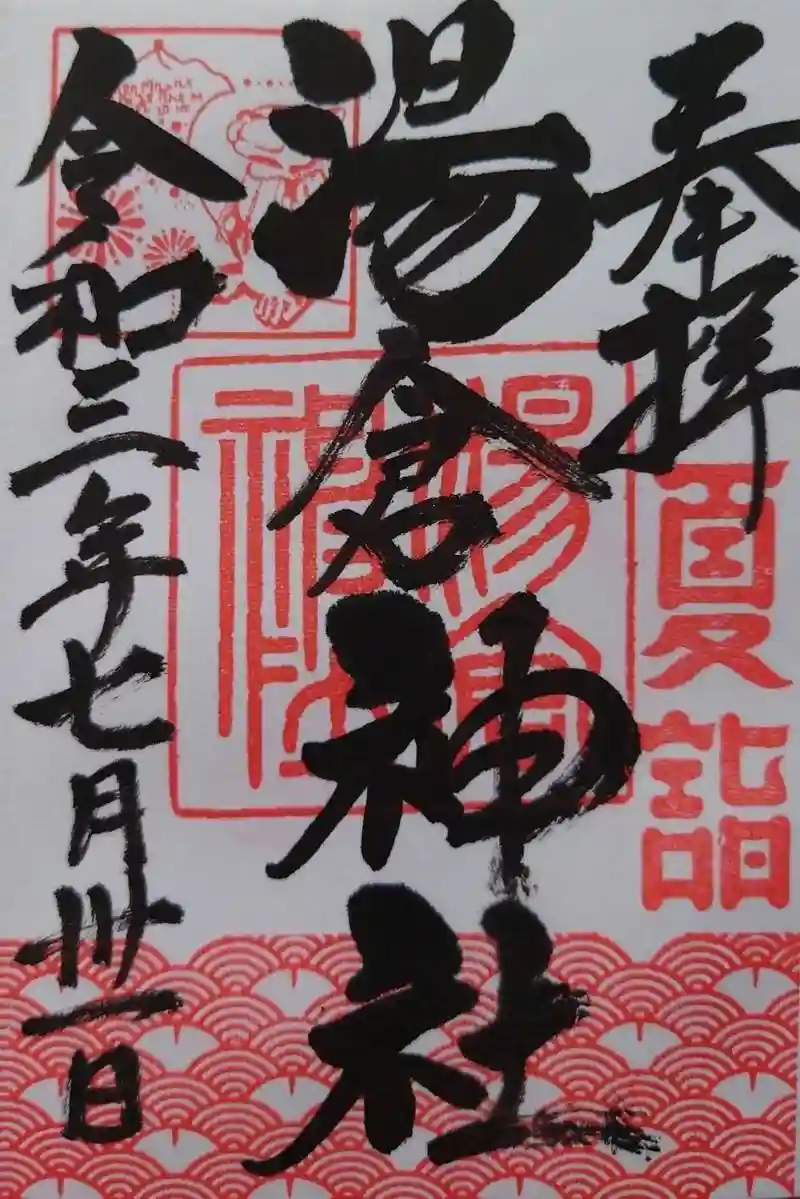 奉拝
夏詣
湯倉神社
湯倉神社
令和三年七月卅一日